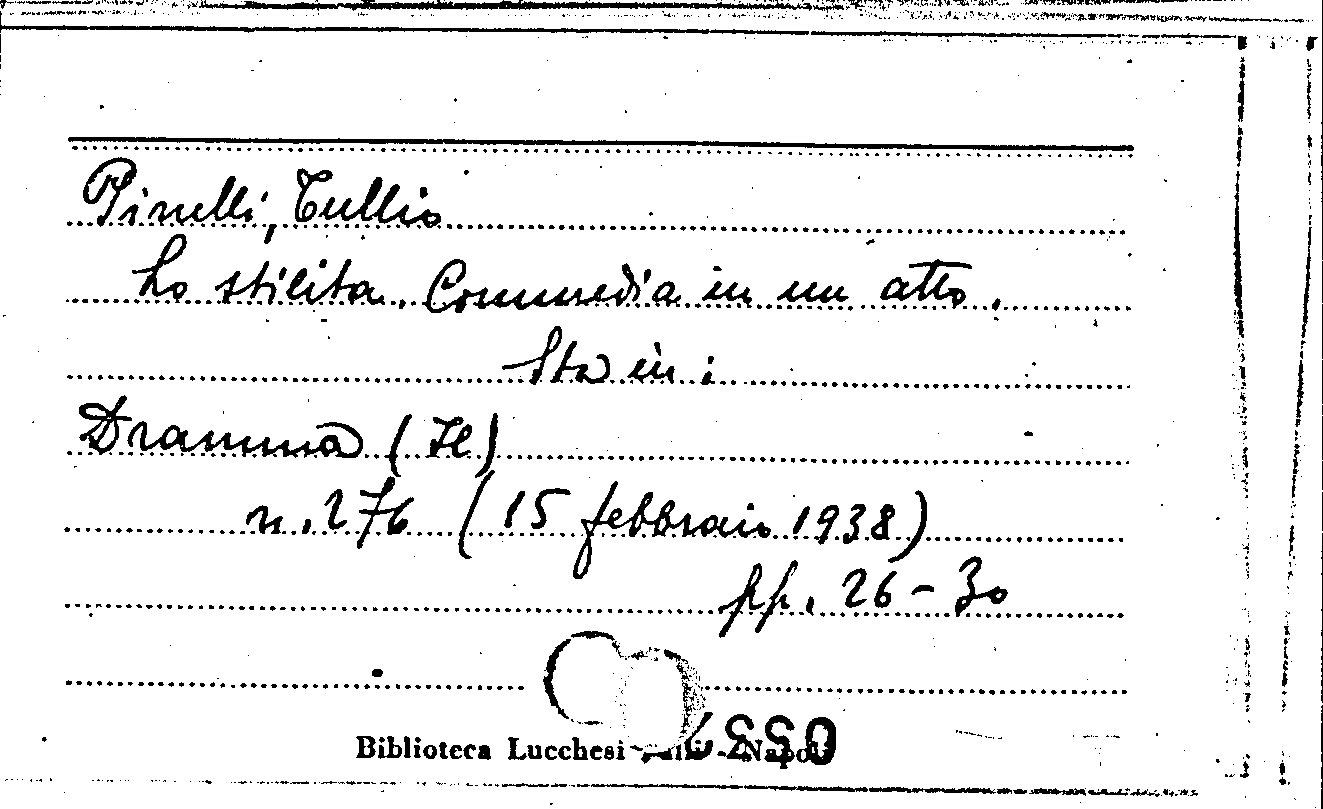 Pinelli, Tullio
Lo stilita. Commedia in un atto.
Sta in:
Dramma (Il)
n. 276 (15 febbraio 1938)
pp. 26-30
Biblioteca Lucchesi - Napoli